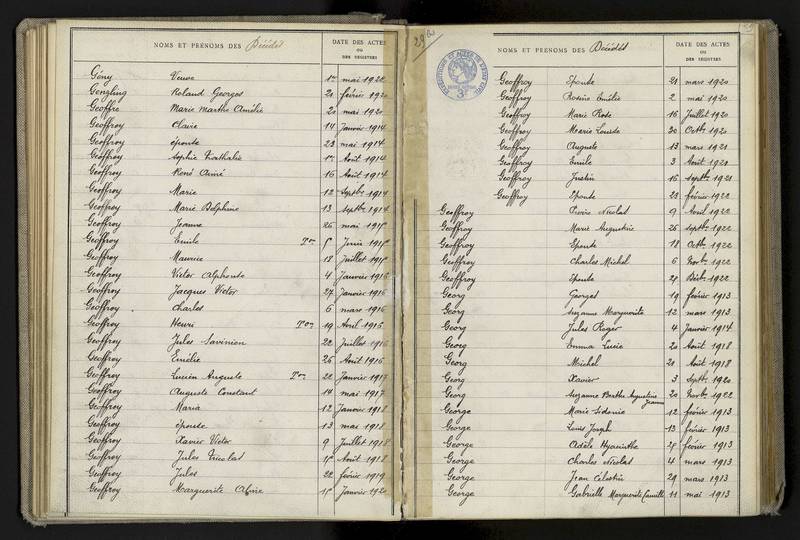 NOMS ET PRÉNOMS DES Décédés
DATE DES ACTES
OU
DES REGISTRES
Gény Veuve 1er mai 1922
Genzling Roland Georges 21 février 1920
Geoffre Marie Marthe Amélie 20 mai 1920
Geoffroy Claire 14 Janvier 1914
Geoffroy épouse 23 mai 1914
Geoffroy Sophie Nathalie 1er Août 1914
Geoffroy René Aimé 16 Août 1914
Geoffroy Marie 12 Septbre 1914
Geoffroy Marie Delphine 13 Septbre 1914
Geoffroy Jeanne 26 mai 1915
Geoffroy Emile Ton 5 Juin 1915
Geoffroy Maurice 18 Juillet 1915
Geoffroy Victor Alphonse 4 Janvier 1916
Geoffroy Jacques Victor 27 Janvier 1916
Geoffroy Charles 6 mars 1916
Geoffroy Henri Ton 19 Avril 1916
Geoffroy Jules Savinien 22 Juillet 1916
Geoffroy Emélie 26 Août 1916
Geoffroy Lucien Auguste Ton 22 Janvier 1917
Geoffroy Auguste Constant 14 mai 1917
Geoffroy Maria 12 Janvier 1918
Geoffroy épouse 13 mai 1918
Geoffroy Xavier Victor 9 Juillet 1918
Geoffroy Jules Nicolas Août 1918
Geoffroy Jules 22 février 1919
Geoffroy Marguerite Janvier 1920
NOMS ET PRÉNOMS DES Décédés
DATE DES ACTES
OU
DES REGISTRES
Geoffroy Epouse 21 mars 1920
Geoffroy Rosine Emélie 2 mai 1920
Geoffroy Marie Rose 16 Juillet 1920
Geoffroy Marie Louise 30 Octbre 1920
Geoffroy Auguste 13 mars 1921
Geoffroy Emile 3 Août 1921
Geoffroy Justin 16 Septbre 1921
Geoffroy Epouse 28 février 1922
Geoffroy Pierre Nicolas 9 Avril 1922
Geoffroy Marie Augustine 26 Septbre 1922
Geoffroy Epouse 18 Octbre 1922
Geoffroy Charles Michel 6 Novbre 1922
Geoffroy Epouse Décbre 1922
Georg Georges 19 février 1913
Georg Suzanne Marguerite 12 mars 1913
Georg Jules Roger 4 Janvier 1914
Georg Emma Lucie 20 Août 1918
Georg Michel 21 Août 1918
Georg Xavier 3 Septbre 1920
Georg Suzanne Berthe Augustine Jeanne 20 Novbre 1922
George Marie Sidonie 12 février 1913
George Louis Joseph 13 février 1913
George Adèle Hyacinthe février 1913
George Charles Nicolas 4 mars 1913
George Jean Célestin 29 mars 1913
George Gabrielle Marguerite Camille 11 mai 1913